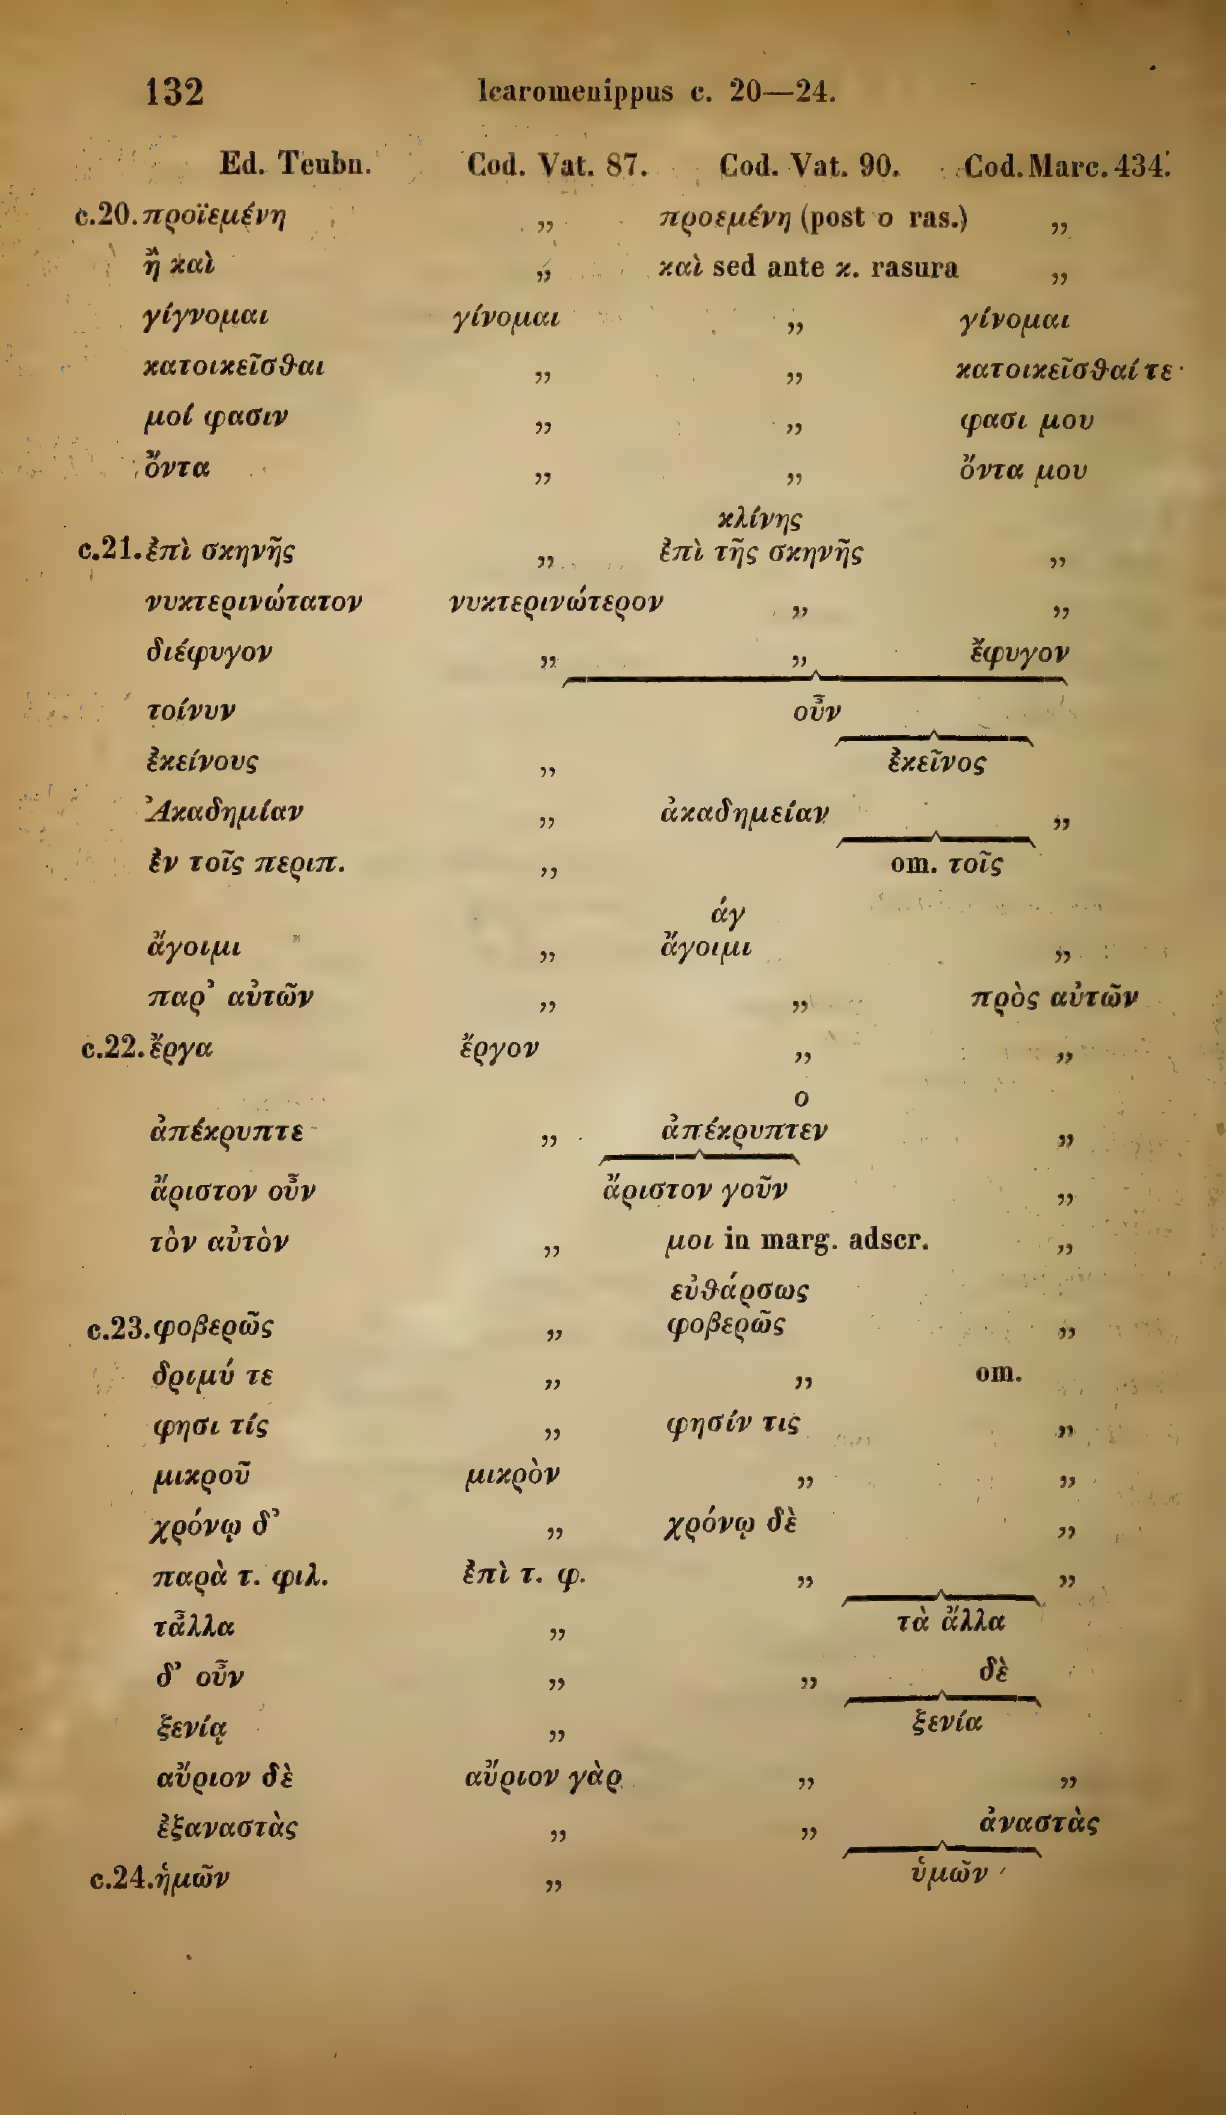 132 Icaromenippus c. 20—24.
Ed. Teubn. Cod. Vat. 87. Cod. Vat. 90. Cod. Marc. 434.
c.20. προϊεμένη „ προεμένη (post ο ras.) „
ἢ καὶ „ καὶ sed ante κ. rasura „
γίγνομαι γίνομαι „ γίνομαι
κατοικεῖσθαι „ „ κατοικεῖσθαί τε
μοί φασιν „ „ φασι μου
ὄντα „ „ ὄντα μου
κλίνης
c.21. ἐπὶ σκηνῆς „ ἐπὶ τῆς σκηνῆς „
νυκτερινώτατον νυκτερινώτερον „ „
διέφυγον „ „ ἔφυγον
τοίνυν οὖν
ἐκείνους „ ἐκεῖνος
Ἀκαδημίαν „ ἀκαδημείαν „
ἐν τοῖς περιπ. „ om. τοῖς
άγ
ἄγοιμι „ ἄγοιμι „
παρ’ αὐτῶν „ „ πρὸς αὐτῶν
c.22. ἔργα ἔργον „ „
ο
ἀπέκρυπτε „ ἀπέκρυπτεν „
ἄριστον οὖν ἄριστον γοῦν „
τὸν αὐτὸν „ μοι in marg. adscr. „
εὐθάρσως
c.23. φοβερῶς „ φοβερῶς „
δριμύ τε „ „ om.
φησι τίς „ φησίν τις „
μικροῦ μικρὸν „ „
χρόνῳ δ’ „ χρόνῳ δὲ „
παρὰ τ. φιλ. ἐπὶ τ. φ. „ „
τἆλλα „ τὰ ἄλλα
δ’ οὖν „ „ δὲ
ξενίᾳ „ ξενία
αὔριον δὲ αὔριον γὰρ „ „
ἐξαναστὰς „ „ ἀναστὰς
c.24. ἡμῶν „ ὑμῶν